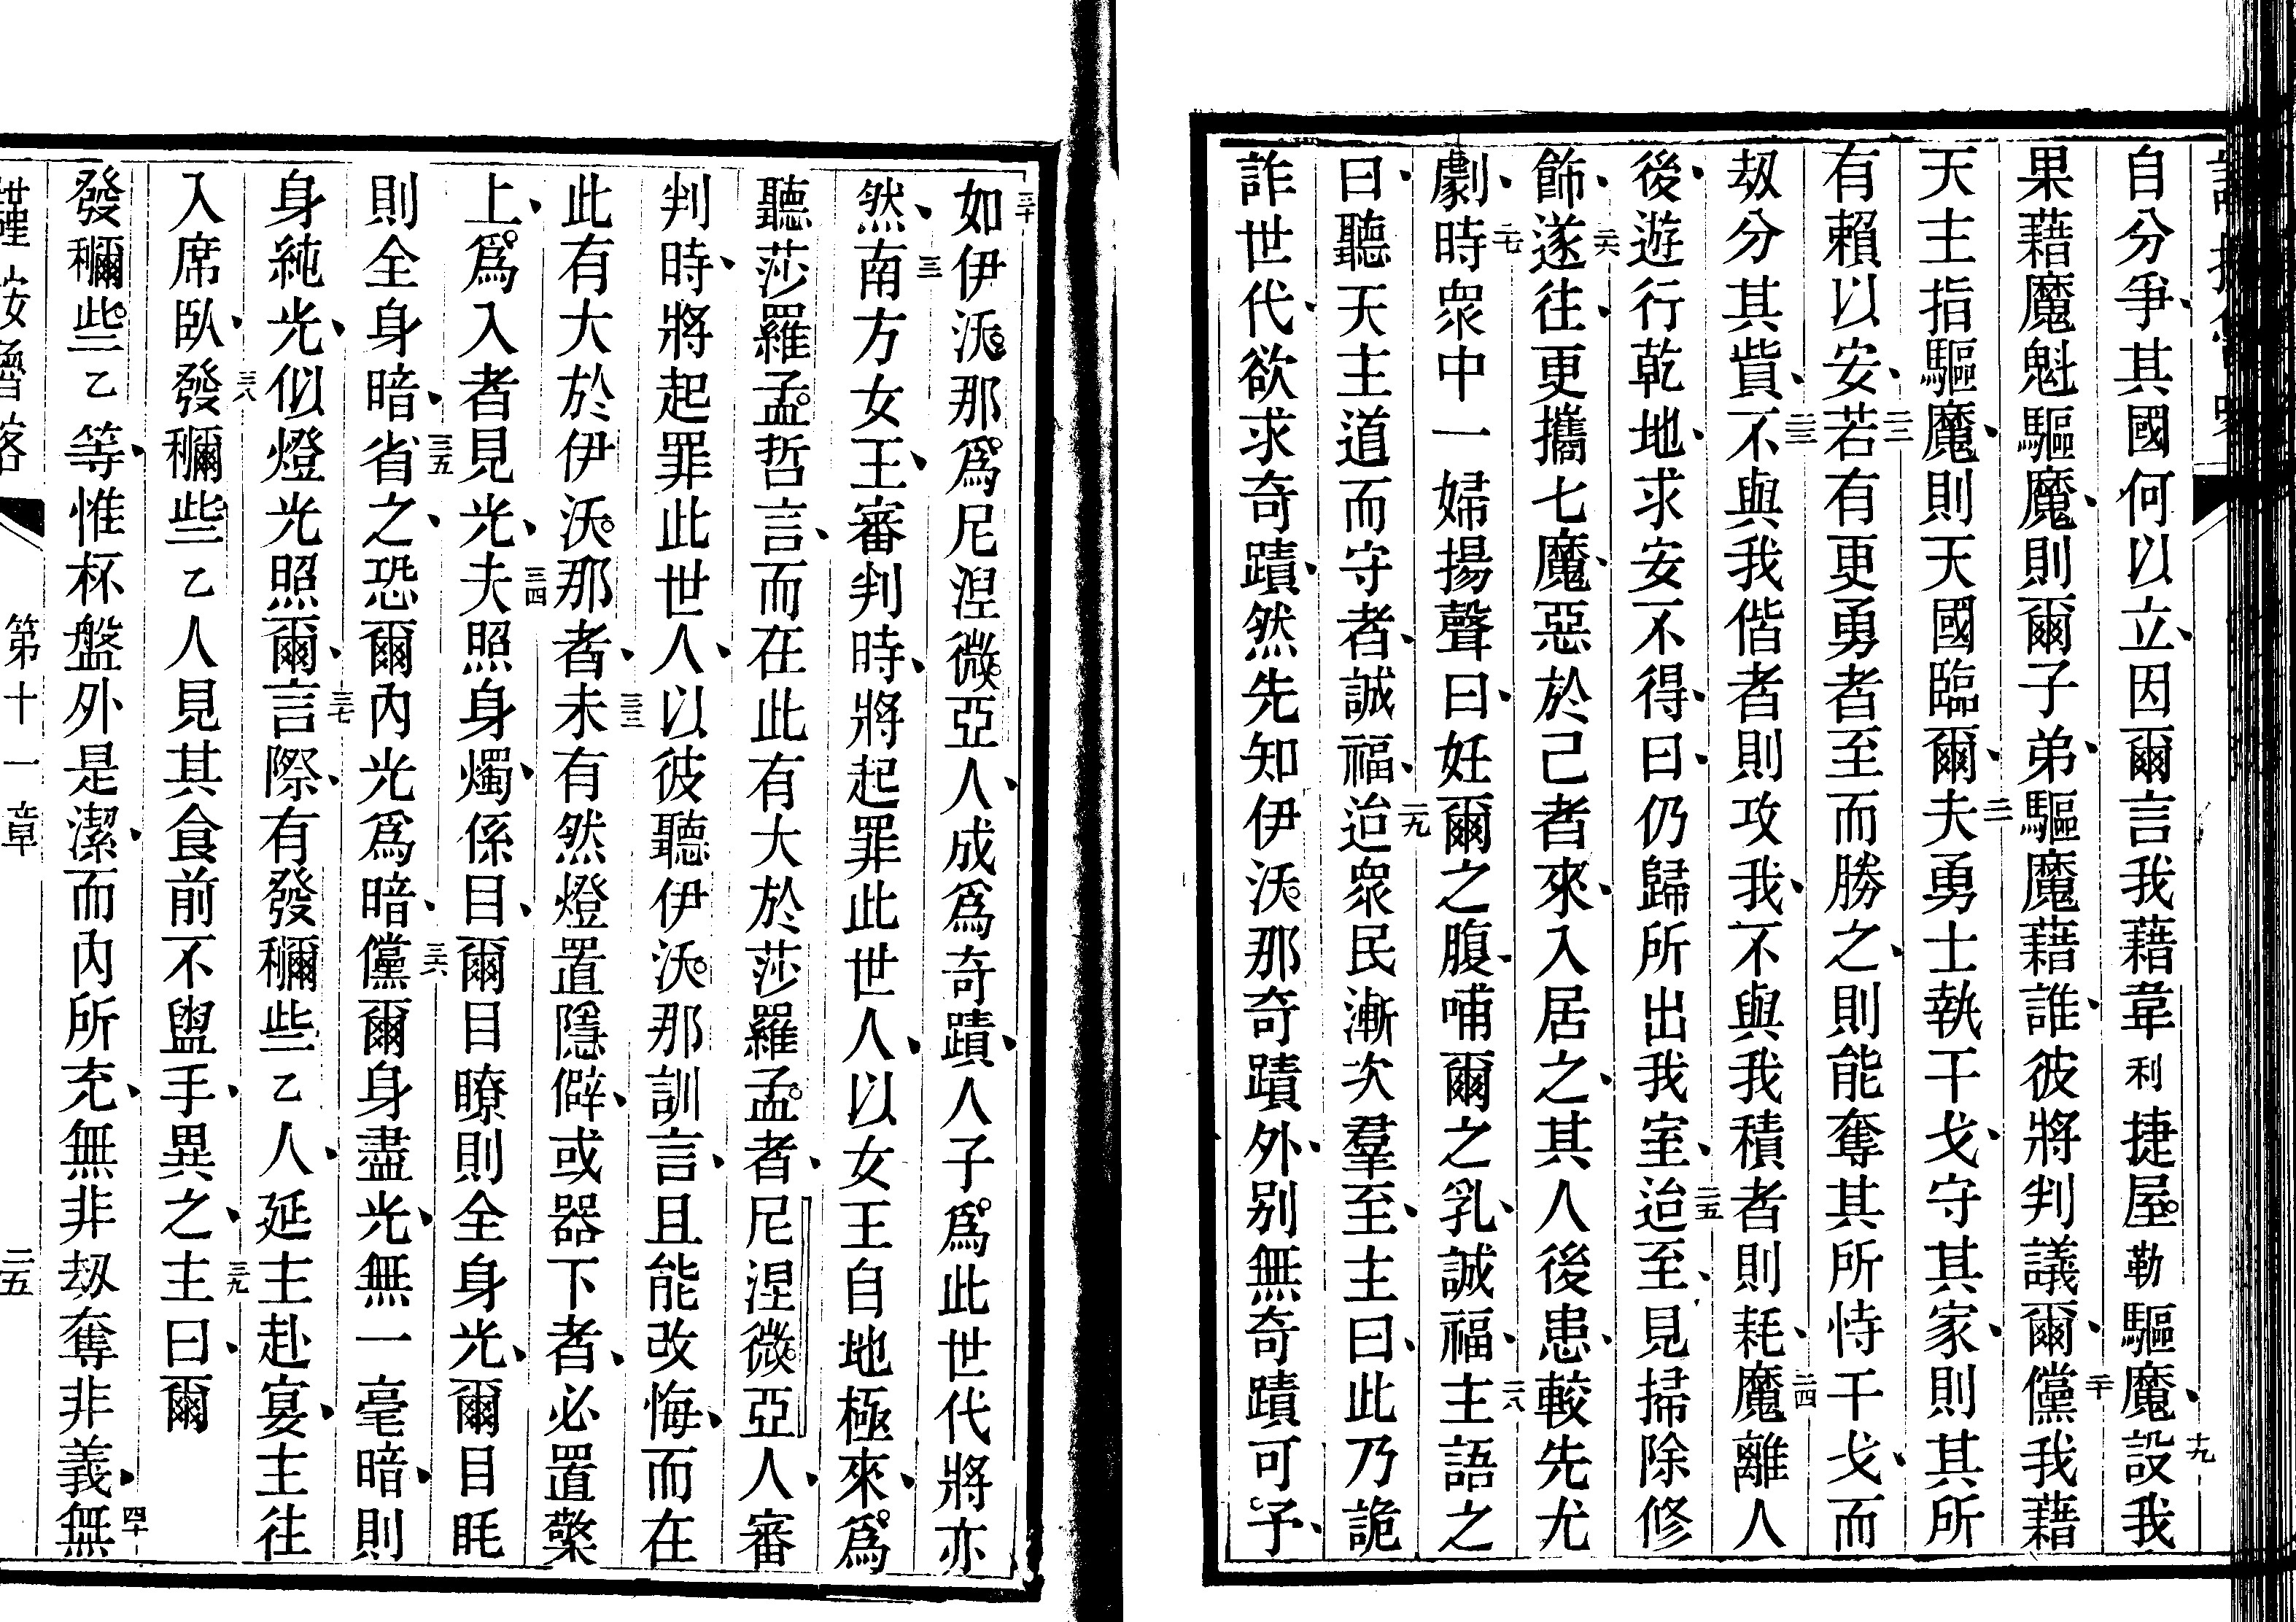 自分爭其國何以立因爾言我藉韋利捷屋勒驅魔十九設我
果藉魔魁驅魔則爾子弟驅魔藉誰彼將判議爾二十儻我藉
天主指驅魔則天國臨爾二一夫勇士執干戈守其家則其所
有賴以安二二若有更勇者至而勝之則能奪其所恃干戈而
刼分其貲二三不與我偕者則攻我不與我積者則耗二四魔離人
後遊行乾地求安不得曰仍歸所出我室二五迨至見掃除修
飾二六遂往更攜七魔惡於己者來入居之其人後患較先尤
劇二七時眾中一婦揚聲曰妊爾之腹哺爾之乳誠福二八主語之
曰聽天主道而守者誠福二九迨眾民漸次羣至主曰此乃詭
詐世代欲求奇蹟然先知伊沃那奇蹟外別無奇蹟可予
三十如伊沃那爲尼涅微亞人成爲奇蹟人子爲此世代將亦
然三一南方女王審判時將起罪此世人以女王自地極來爲
聽莎羅孟哲言而在此有大於莎羅孟者尼涅微亞人審
判時將起罪此世人以彼聽伊沃那訓言且能改悔而在
此有大於伊沃那者三三未有然燈置隱僻或器下者必置檠
上爲入者見光三四夫照身燭係目爾目瞭則全身光爾目眊
則全身暗三五省之恐爾內光爲暗三六儻爾身盡光無一毫暗則
身純光似燈光照爾三七言際有發穪些乙人延主赴宴主往
入席臥三八發穪些乙人見其食前不盥手異之三九主曰爾
發穪些乙等惟杯盤外是潔而內所充無非刼奪非義四十無
第十一章
二五